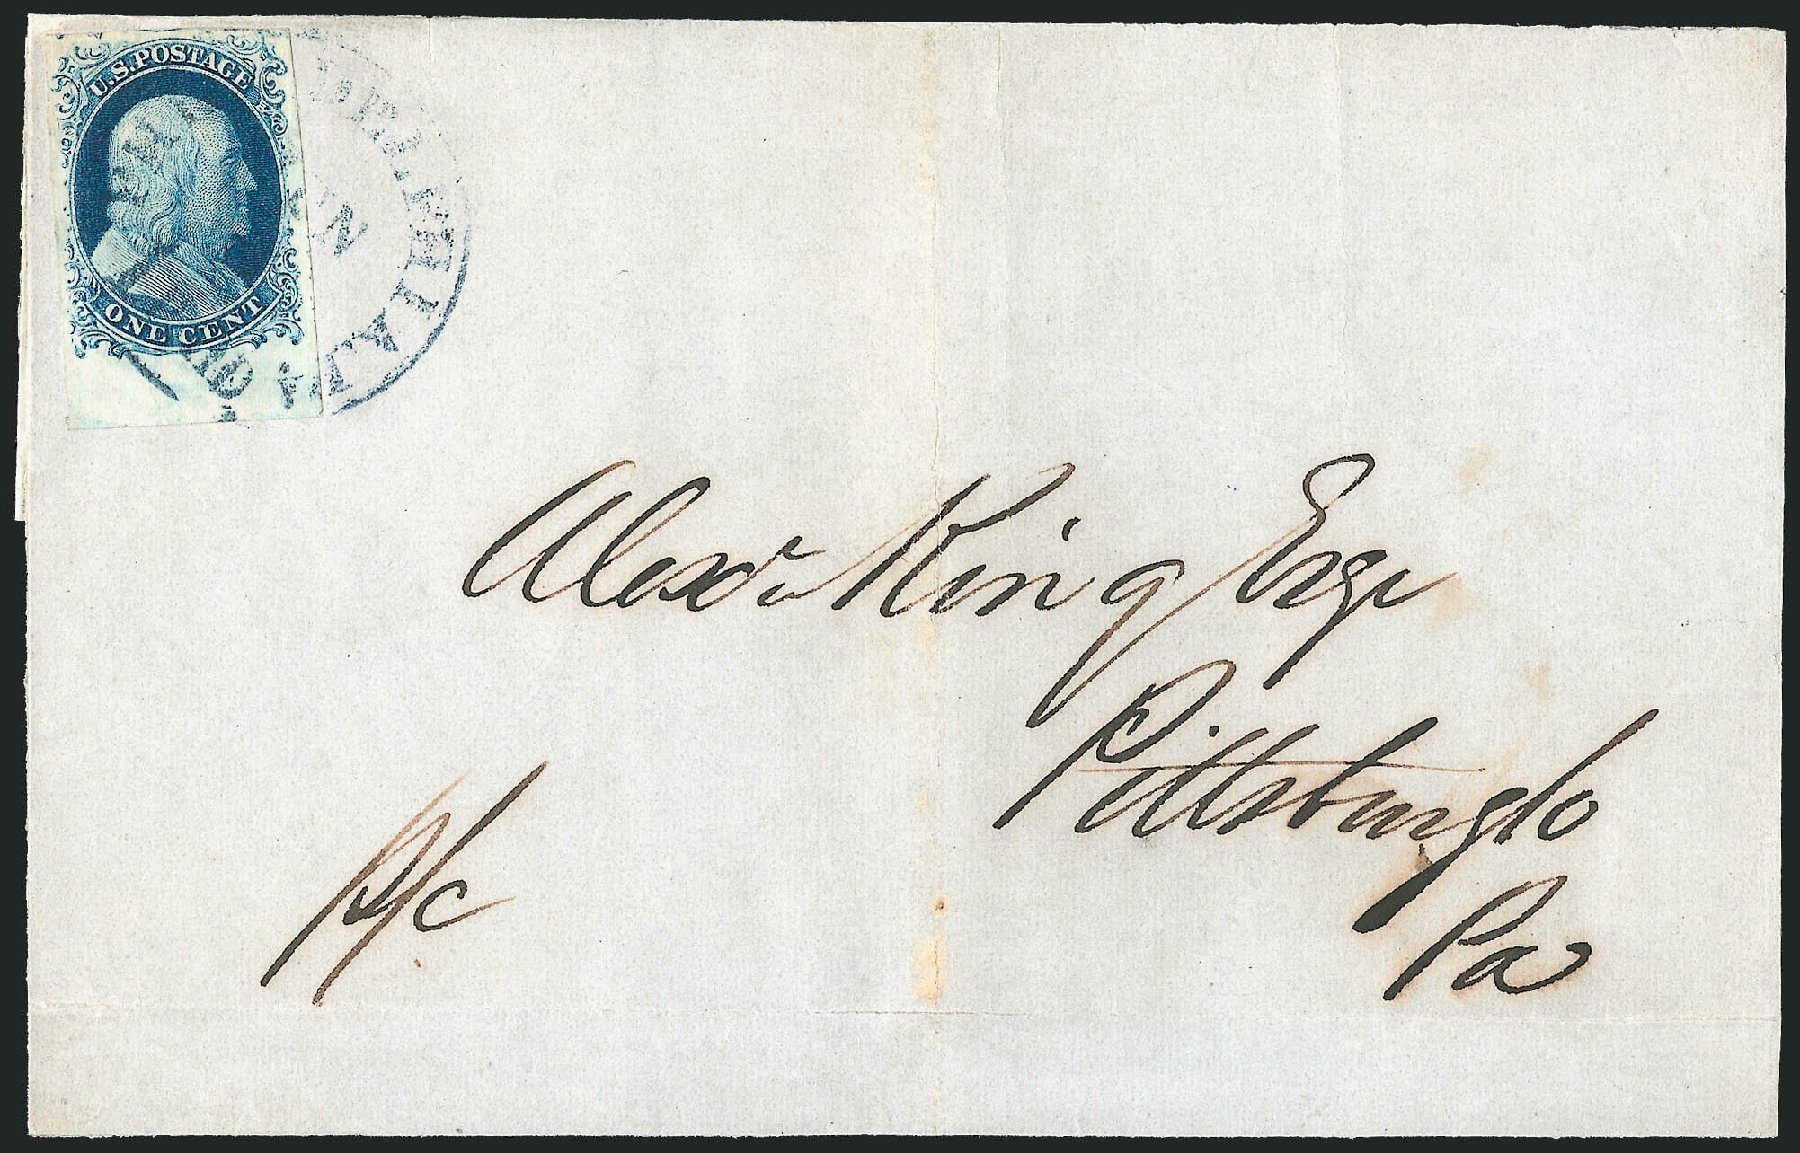 U.S.POSTAGE
ONE CENT
PHILADELPHIA Pa.
Alexr King Esqr
Pittsburgh
Pa
P/c